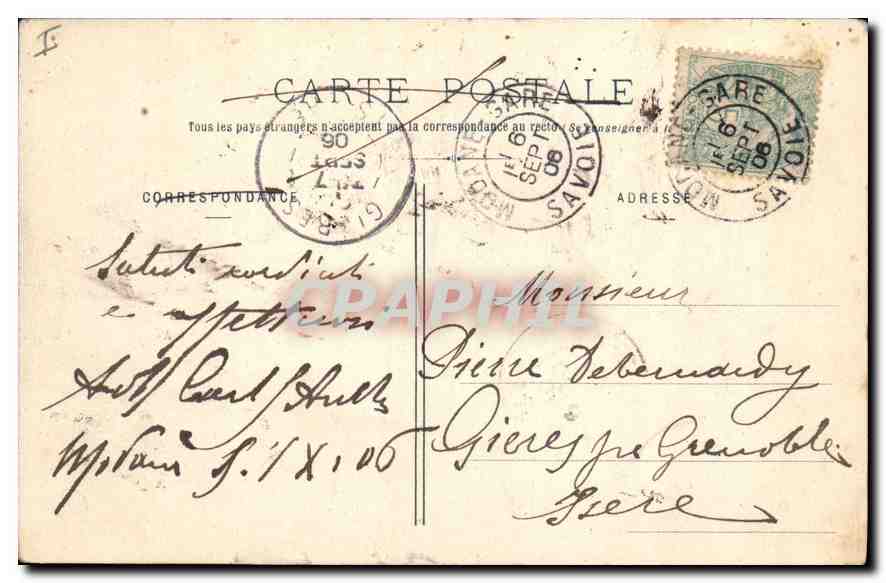 I.
CARTE POSTALE
Tous les pays étrangers n'acceptent pas la correspondance au recto (Se renseigner à la
CORRESPONDANCE
ADRESSE
MODANE-GARE
6
SEPT
06
SAVOIE
MODANE-GARE
6
SEPT
06
SAVOIE
7
SEPT
06
GIÈRES
CPAPHIL
Saluti cordiali
e affettuosi
Modane 5/IX.06
Monsieur
Pierre Debernardy
Gieres pr Grenoble
Isere